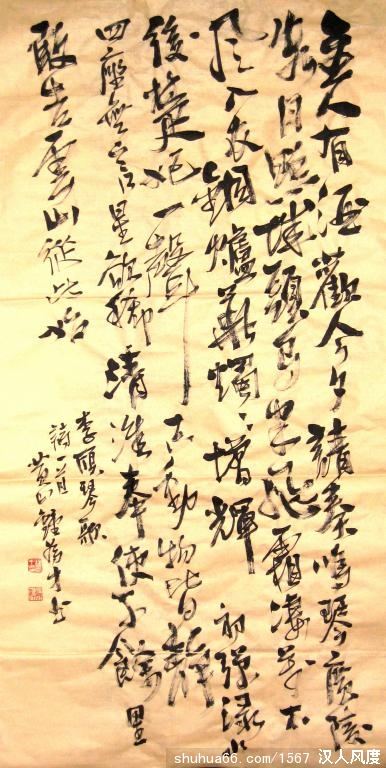 主人有酒歡今夕請奏鳴琴廣陵
客月照城頭烏半飛霜凄萬木
風入衣銅爐華燭〻增輝初彈淥水
後楚妃一聲已動物皆靜
四座無言星欲稀清淮奉使千餘里
敢告雲山從此始
李頎琴歌
詩一首
黄山書
shuhua66.com/1567 汉人风度